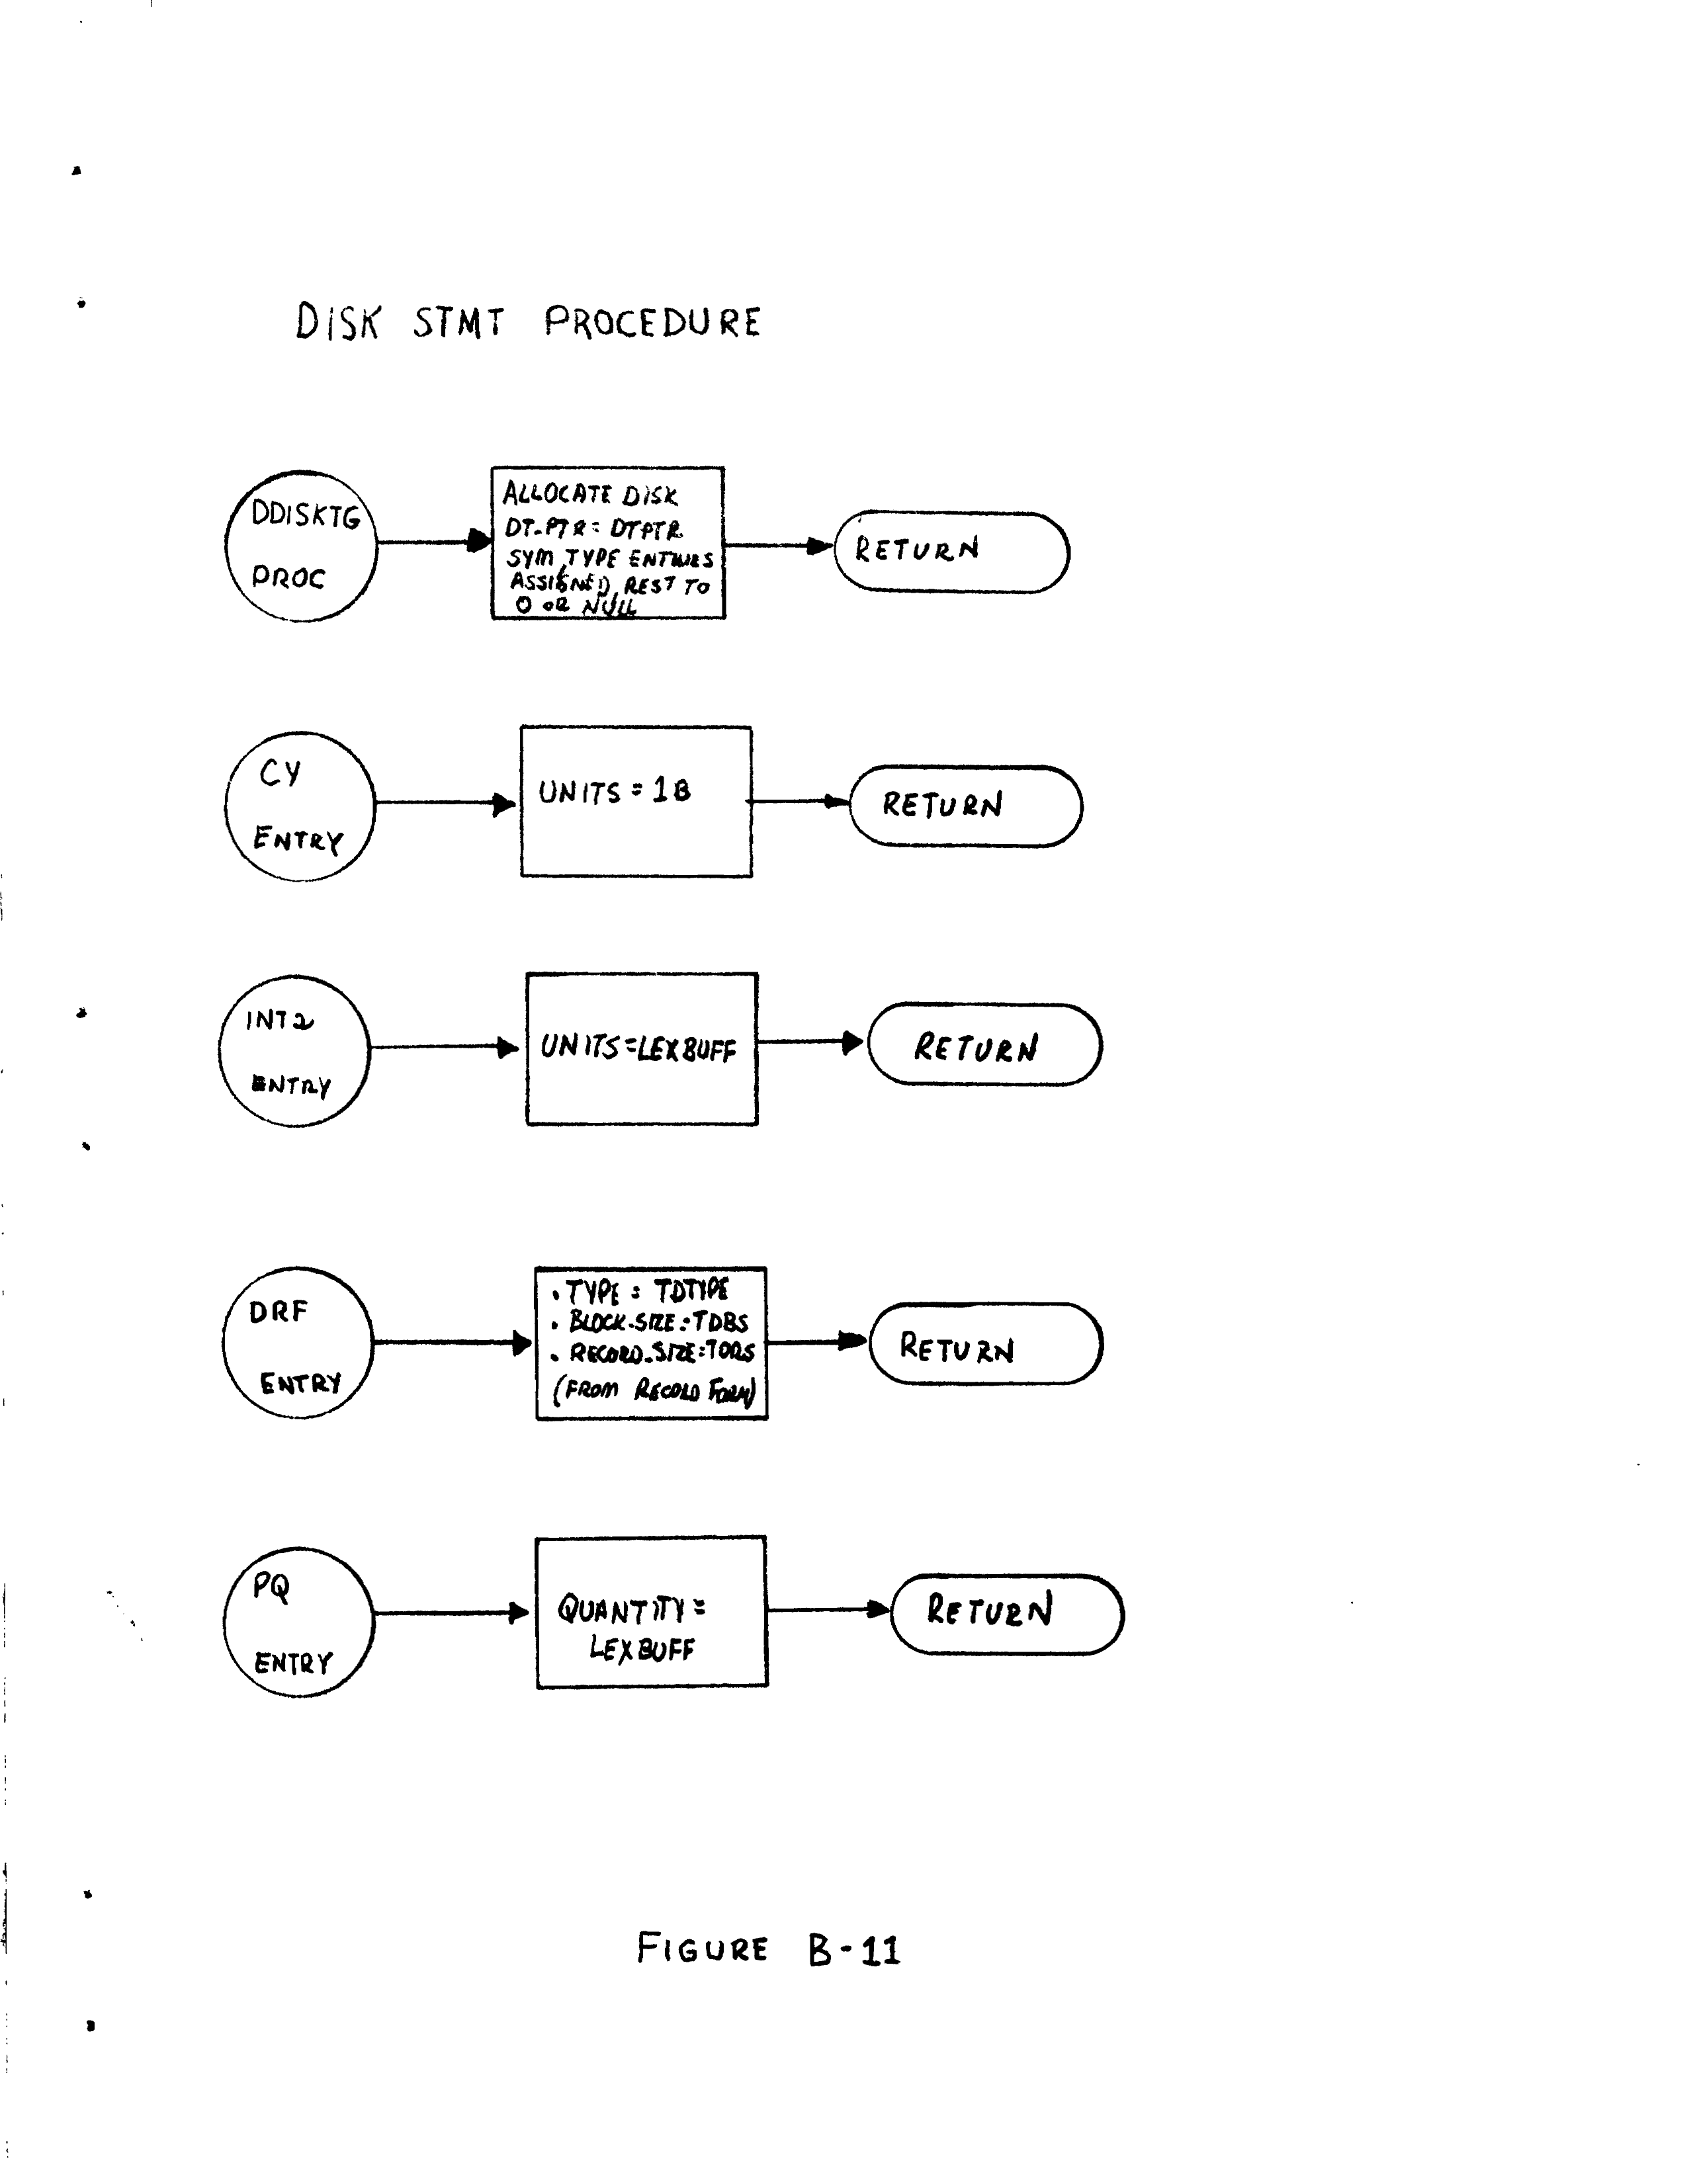 DISK STMT PROCEDURE
DDISKTG
PROC
ALLOCATE DISK
DT-PTR = DTPTR
SYM, TYPE ENTRIES
ASSIGNED, REST TO
0 OR NULL
RETURN
CY
ENTRY
UNITS = 1B
RETURN
INT2
ENTRY
UNITS=LEXBUFF
RETURN
DRF
ENTRY
. TYPE = TDTYPE
. BLOCK-SIZE = TDBS
. RECORD-SIZE = TDRS
(FROM RECORD FORM)
RETURN
PQ
ENTRY
QUANTITY =
LEXBUFF
RETURN
FIGURE B-11